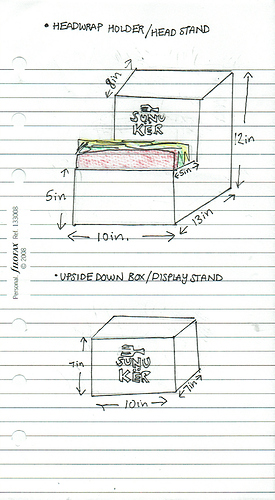 • HEADWRAP HOLDER/HEAD STAND
8in
SUNU
KER
12in
5in
5in
13in
10in.
• UPSIDE DOWN BOX/DISPLAY STAND
7in
SUNU
KER
7in
10in
Personal filofax Ref. 133008
© 2008